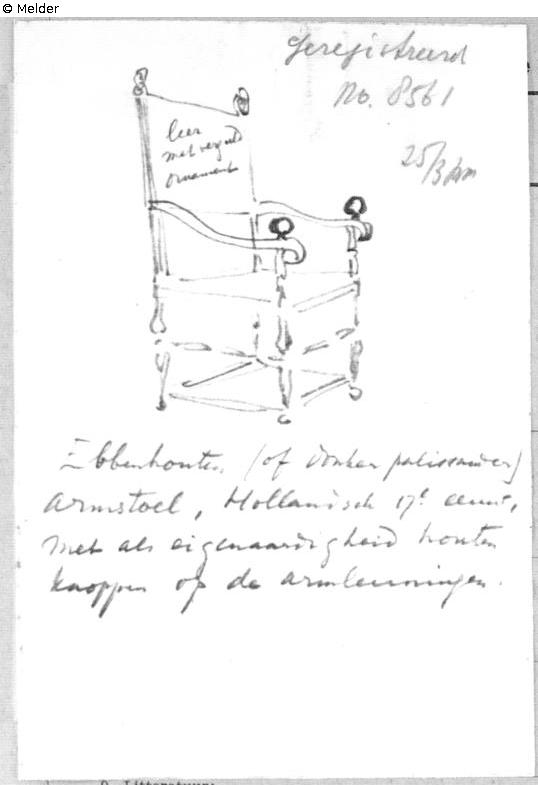 © Melder
Geregistreerd
No. 8561
25/3
leer
met verguld
ornament
Ebbenhouten (of donker palissander)
armstoel, Hollandsch 17e eeuw,
met als eigenaardigheid houten
knoppen op de armleuningen.
Litteratuur: